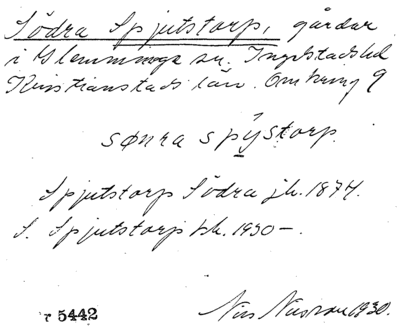 Södra Spjutstorp, gårdar
i Glemminge sn. Ingelstads hd
Kristianstads län. Omkring 9
sønra spy̱storp.
Spjutstorp Södra jb. 1874.
S. Spjutstorp bk. 1930–.
Nils 1930.
r 5442